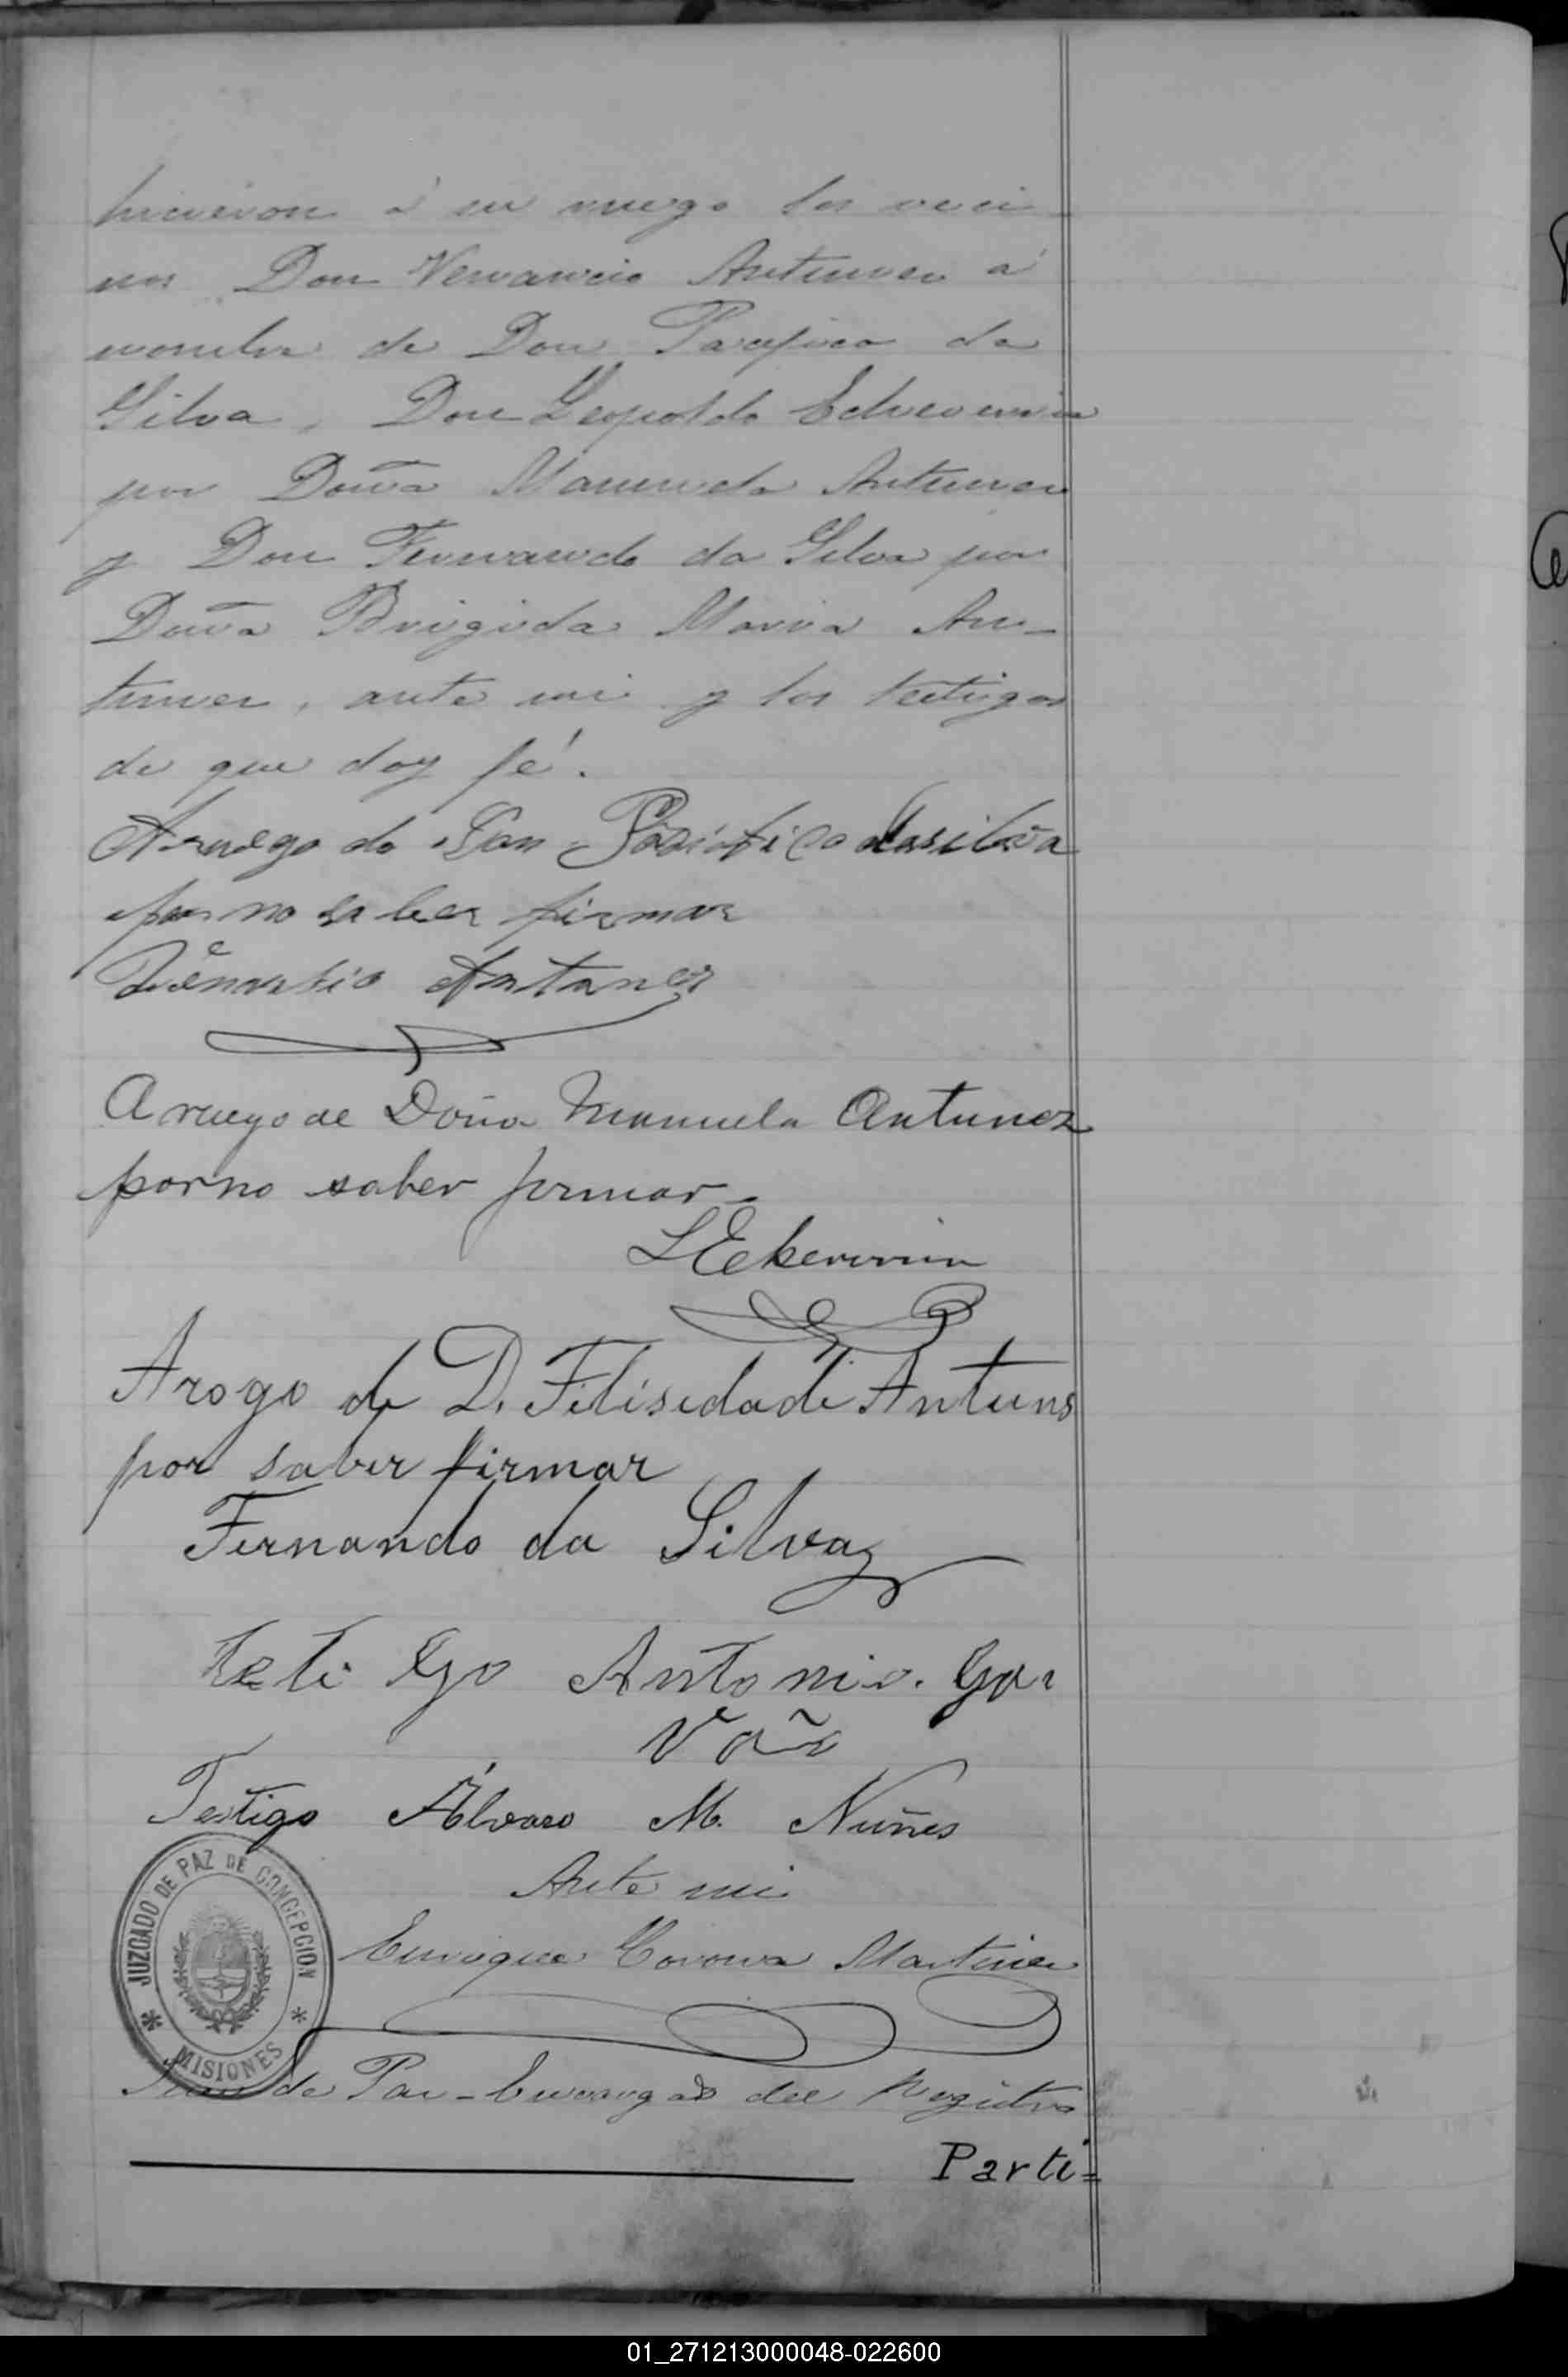 hicieron á su ruego los veci-
nos Don Venancio Antunez á
nombre de Don Pacifico da
Silva, Don Leopoldo Echeverria
por Doña Manuela Antunez
y Don Fernando da Silva por
Doña Brigida Maria An-
tunez, ante mi y los testigos
de que doy fé.
Aruego do Don Pasiofico dasilva
por no saber firmar
Venansio Antanez
A ruego de Doña Manuela Antunez
por no saber firmar.
LEcheverria
Arogo de D. Felisedade Antuns
por saber firmar
Fernando da Silva
testi go Antonio. Gal
Vão
Testigo Álvaro M. Nuñes
JUZGADO DE PAZ DE CONCEPCION
MISIONES
Ante mi
Enrique Corona Martinez
Juez de Paz - Encargado del Registro
Parti=
01_271213000048-022600